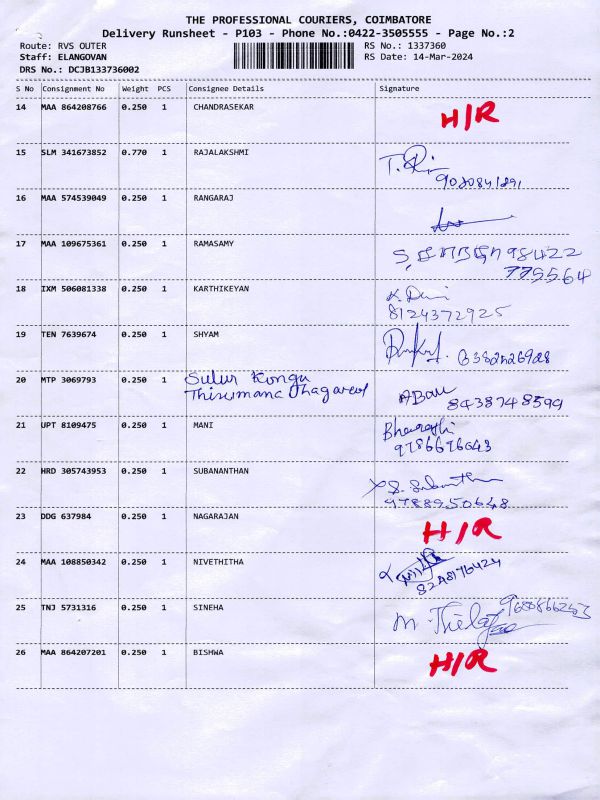 THE PROFESSIONAL COURIERS, COIMBATORE
Delivery Runsheet - P103 - Phone No.:0422-3505555 - Page No.:2
Route: RVS OUTER
RS No.: 1337360
Staff: ELANGOVAN
RS Date: 14-Mar-2024
DRS No.: DCJB133736002
S No Consignment No Weight PCS Consignee Details Signature
14 MAA 864208766 0.250 1 CHANDRASEKAR H/R
15 SLM 341673852 0.770 1 RAJALAKSHMI
16 MAA 574539049 0.250 1 RANGARAJ
17 MAA 109675361 0.250 1 RAMASAMY 98422
775564
18 IXM 506081338 0.250 1 KARTHIKEYAN
8124372925
19 TEN 7639674 0.250 1 SHYAM
20 MTP 3069793 0.250 1 Sulur Kongu
8438748599
21 UPT 8109475 0.250 1 MANI
9786676643
22 HRD 305743953 0.250 1 SUBANANTHAN
9788950648
23 DDG 637984 0.250 1 NAGARAJAN H/R
24 MAA 108850342 0.250 1 NIVETHITHA
25 TNJ 5731316 0.250 1 SINEHA
26 MAA 864207201 0.250 1 BISHWA H/R